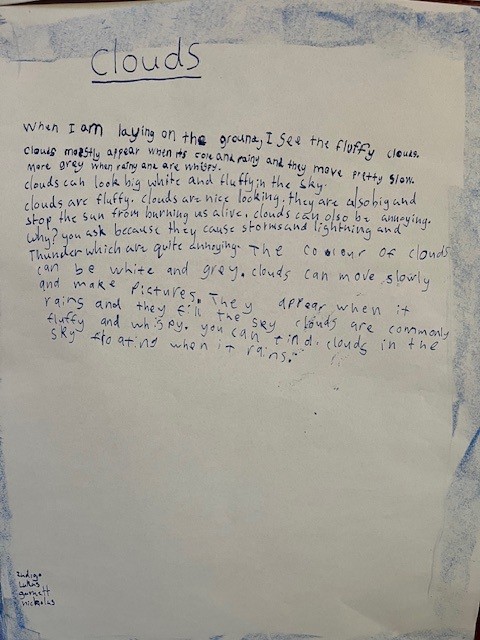 Clouds
When I am laying on the ground, I see the fluffy clouds.
Clouds moestly appear when its cole and rainy and they move pretty slow.
More grey when rainy and are whispy.
clouds can look big white and fluffy in the sky.
clouds are fluffy. clouds are nice looking, they are also big and
stop the sun from burning us alive. clouds can also be annoying.
Why? you ask because they cause storms and lightning and
Thunder which are quite annoying. The colour of clouds
can be white and grey. clouds can move slowly
and make Pictures. They appear when it
rains and they fill the sky clouds are commonly
fluffy and whispy. you can find clouds in the
sky floating when it rains.
Indigo
Lukas
garnett
nickolas